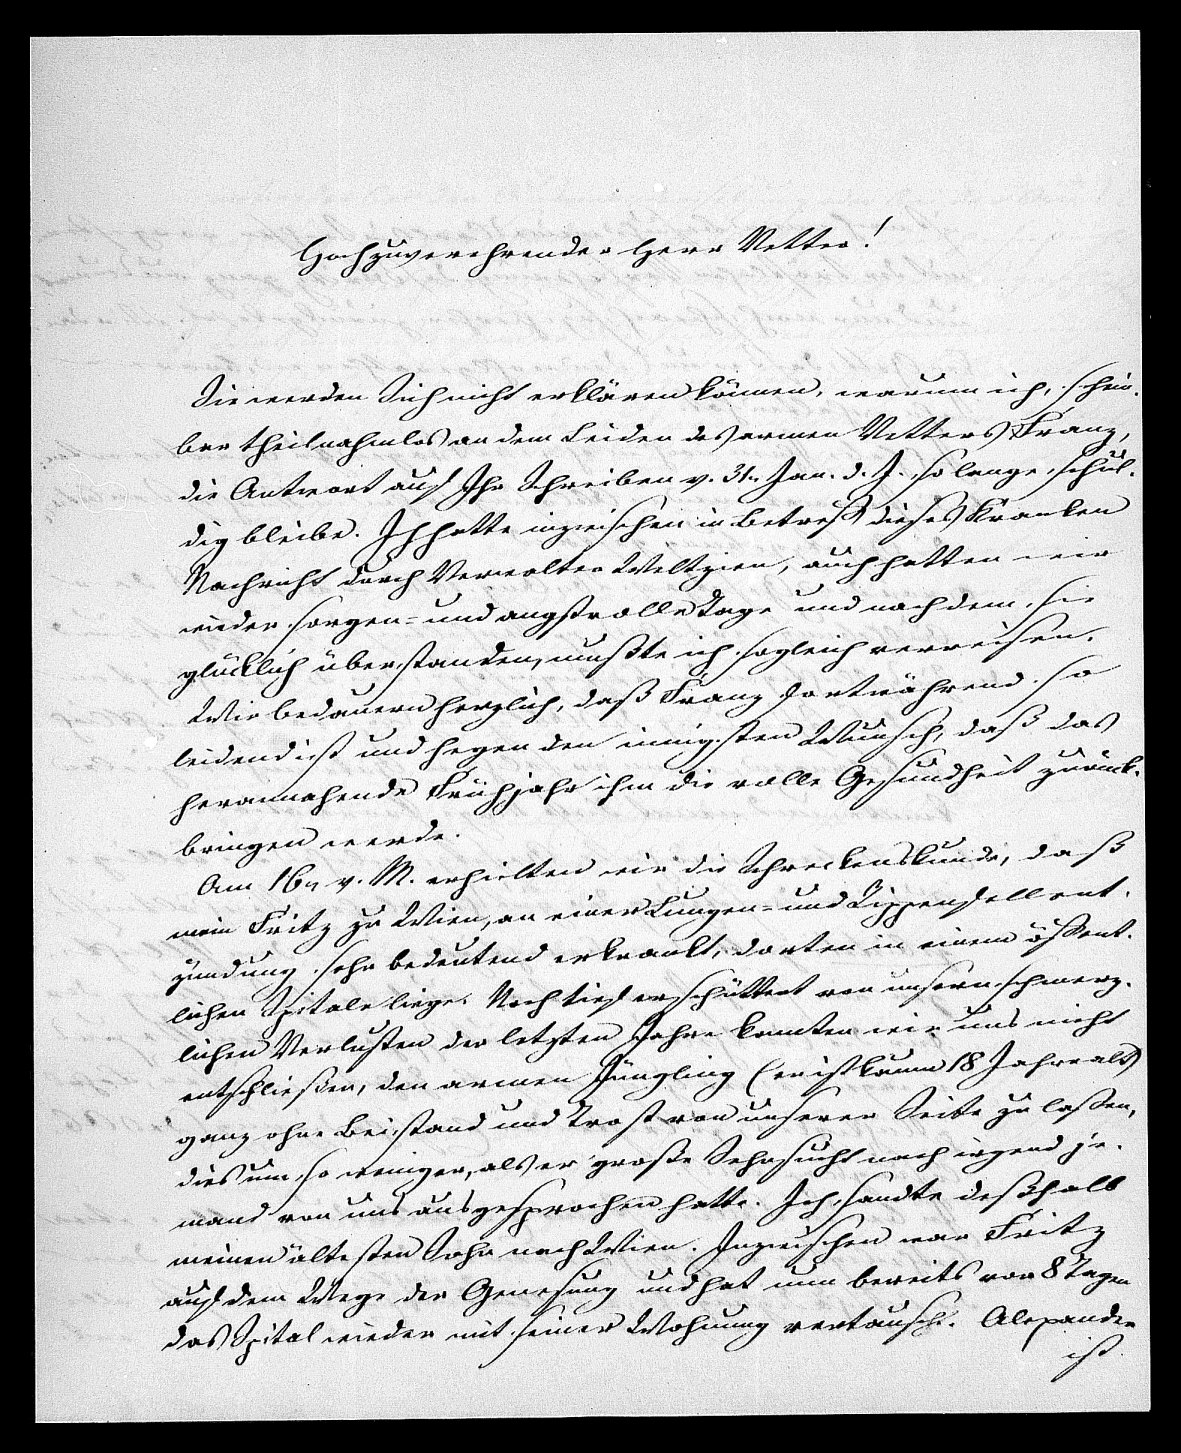 Hochzuverehrender Herr Vetter!
Sie werden Sich nicht erklären können, warum ich, schein-
bar theilnahmlos an dem Leiden des armen Vetters Franz,
die Antwort auf Ihr Schreiben v. 31n Jan. d. J. so lange schul-
dig bleibe. Ich hatte inzwischen in Betreff dieses Kranken
Nachricht durch Verwalter Weltzien, auch hatten wir
wieder sorgen- und angstvolle Tage und nachdem sie
glücklich überstanden, mußte ich sogleich verreisen.
Wir bedauern herzlich, daß Franz fortwährend so
leidend ist und hegen den innigsten Wunsch, daß das
herannahende Frühjahr ihm die volle Gesundheit zurück-
bringen werde.
Am 16n v. M. erhielten wir die Schreckenskunde, daß
mein Fritz zu Wien, an einer Lungen- und Rippenfellent-
zündung sehr bedeutend erkrankt, dorten in einem öffent-
lichen Spitale liege. Noch tief erschüttert von unsern schmerz-
lichen Verlusten der letzten Jahre konnten wir uns nicht
entschließen, den armen Jüngling (er ist kaum 18 Jahre alt)
ganz ohne Beistand und Trost von unserer Seite zu laßen,
dies um so weniger, als er große Sehnsucht nach irgend je-
mand von uns ausgesprochen hatte. Ich sandte deßhalb
meinen ältesten Sohn nach Wien. Inzwischen war Fritz
auf dem Wege der Genesung und hat nun bereits vor 8 Tagen
das Spital wieder mit seiner Wohnung vertauscht. Alexander
ist